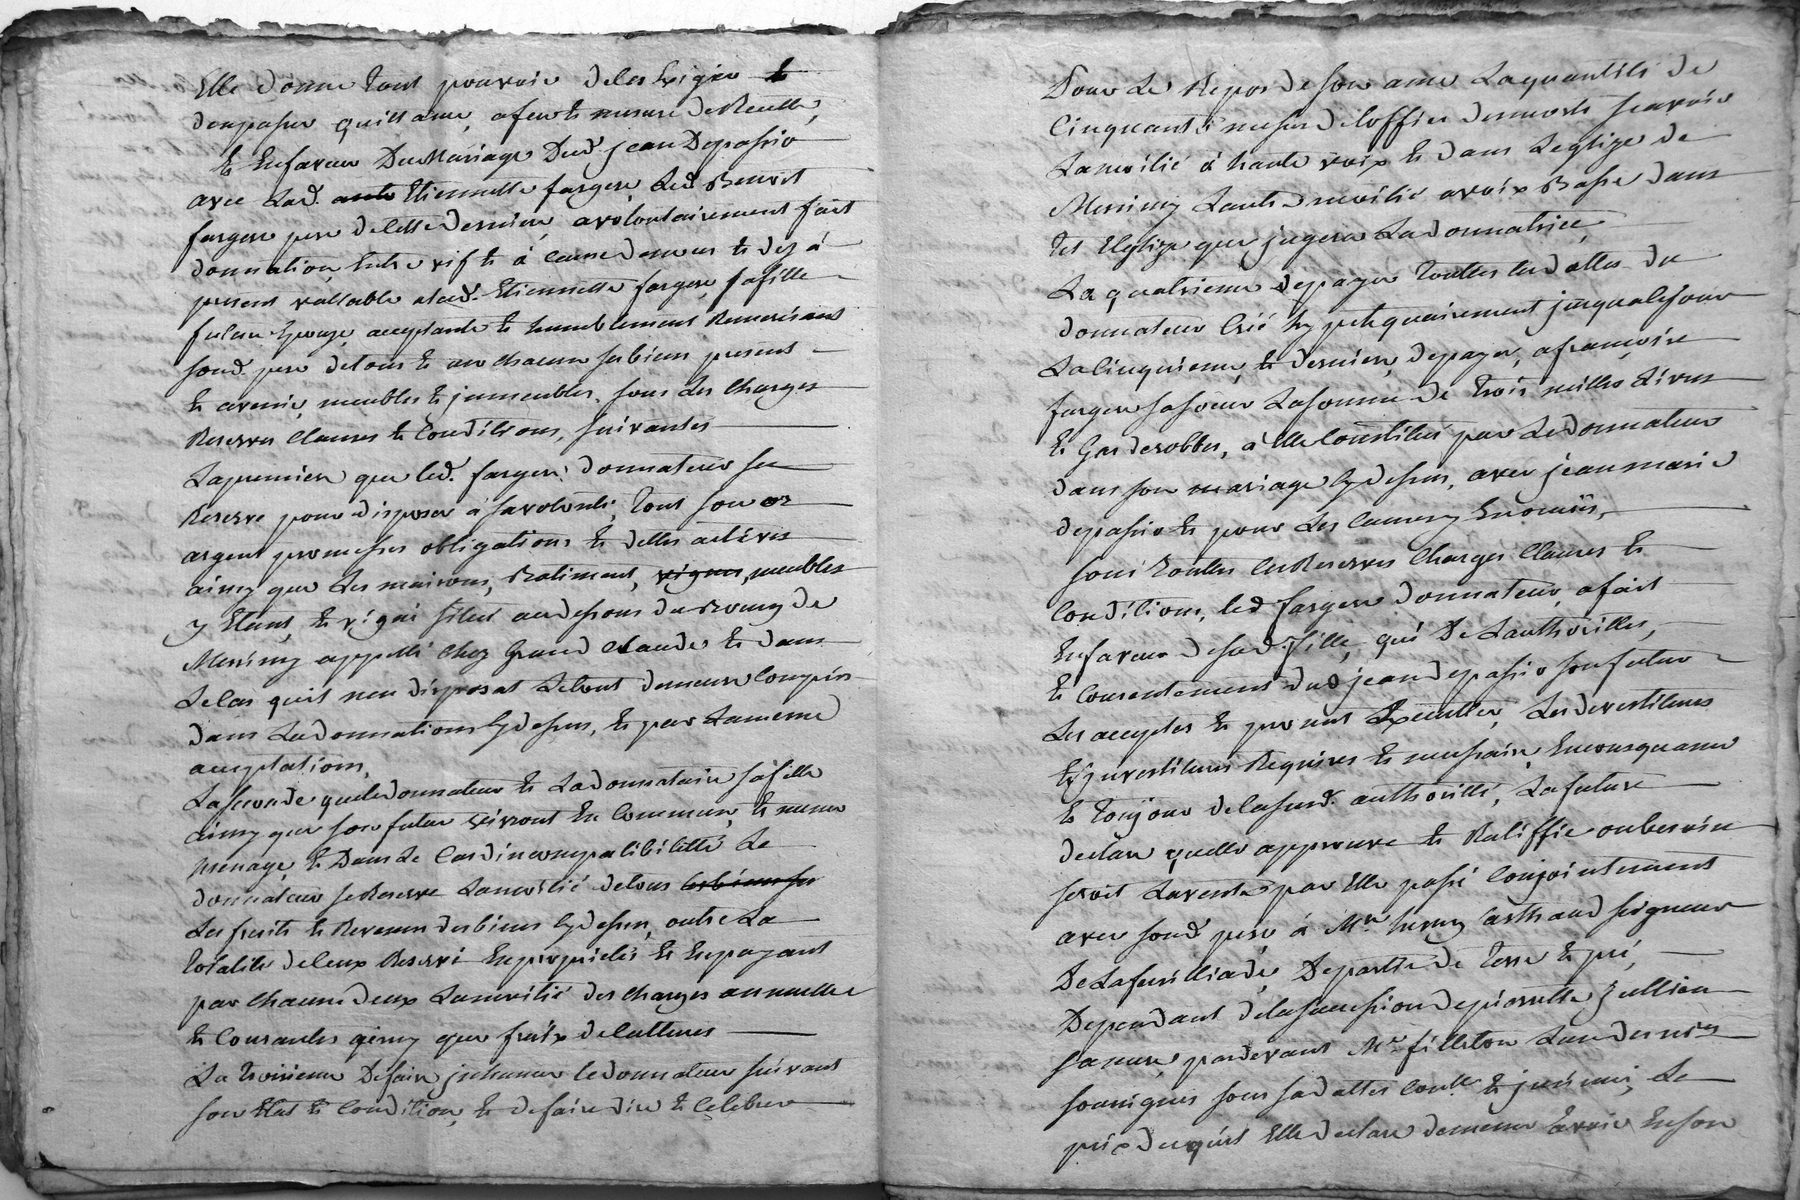 Elle donne tout pouvoir de les Exiger et
den passer quittance, a feur et mesure de Recette,
Et En faveur Du Mariage Dud. jean Depassio
avec Lad. Etiennette fargere Led. Benoit
fargere pere de cette derniere, a volontairement fait
donnation Entre vif et à cause de mort et dez à
present vallable alad. Etiennette fargere, sa fille
future Epouze, acceptante et humblement Remerciant
soud. pere de tous et un chacun ses biens present
et avenir, meubles et jmmeubles, sous Les Charges
Reserves Clauses et Conditions, suivantes
La premiere que led. fargere donnateur se
Reserve pour disposer à sa volonté, Tout son or
argent promesses obligations et dettes actives
ainsy que Les maisons, Batiment, vignes, meubles
y Etant, et situé au dessous du Bourg de
Messimy appellé Chez Grand Claude et dans
Le cas quil nen disposat Le tout demeure compris
dans La donnation Cy dessus, et par La meme
acceptation,
La seconde que le donnateur et La donnataire sa fille
ainsy que son futur vivront En Commun, et meme
menage, et Dans Le Cas dincompatibilitté Le
donnateur se Reserve La moitié de tous les biens ses
Les fruits et Revenus des biens Cy dessus, outre La
totalité de ceux Reservé En proprieté et En payant
par chacun deux La moitié des charges annuelle
et Courantes ainsy que fraix de cultures
La troisieme De faire jnhumer le donnateur suivant
son Etat et Condition, et de faire dire et Celebrer
Pour Le Repos de son ame La quantité de
Cinquante messes de Loffice des morts scavoir
La moitié à haute voix et dans Leglize de
Messimy Lautre moitié a voix Basse dans
tel Eglize que jugera La donnatrice,
La quatrieme de payer Touttes les dettes du
donnateur Crée hypotequairement jusqualejour
La Cinquieme, et derniere, de payer, a françoise
fargere sa soeur La somme de trois milles Livres
et Garderobbes, à Elle Constitué par Le donnateur
dans son mariage Cy dessus, avec jean marie
depassio et pour Les Causes y Enoncéés,
sous Touttes Les Reserves Charges Clauses et
Conditions, led fargere donnateur, a fait
En faveur de sad. fille, qui De Lauthorité,
et Consentement dud jean depassio son futur
Les acceptes et promet Executter, Les devestitures
et jnvestitures Requises et necessaire, Encore que ame
et Toujour de la susd. authorité, La future
declare quelle approuve et Ratiffie ou besoin
seroit La vente par Elle passé Conjointement
avec soud. pere à Mr. seigneur
De La De partie de Terre et pré,
Dependant de la succession de pierrette jullien
sa mere, pardevant Me. filleton Lun des nores
soussignés sous sa datte Conlle. et jnsinué, Le
prix duquel Elle declare demeure En son